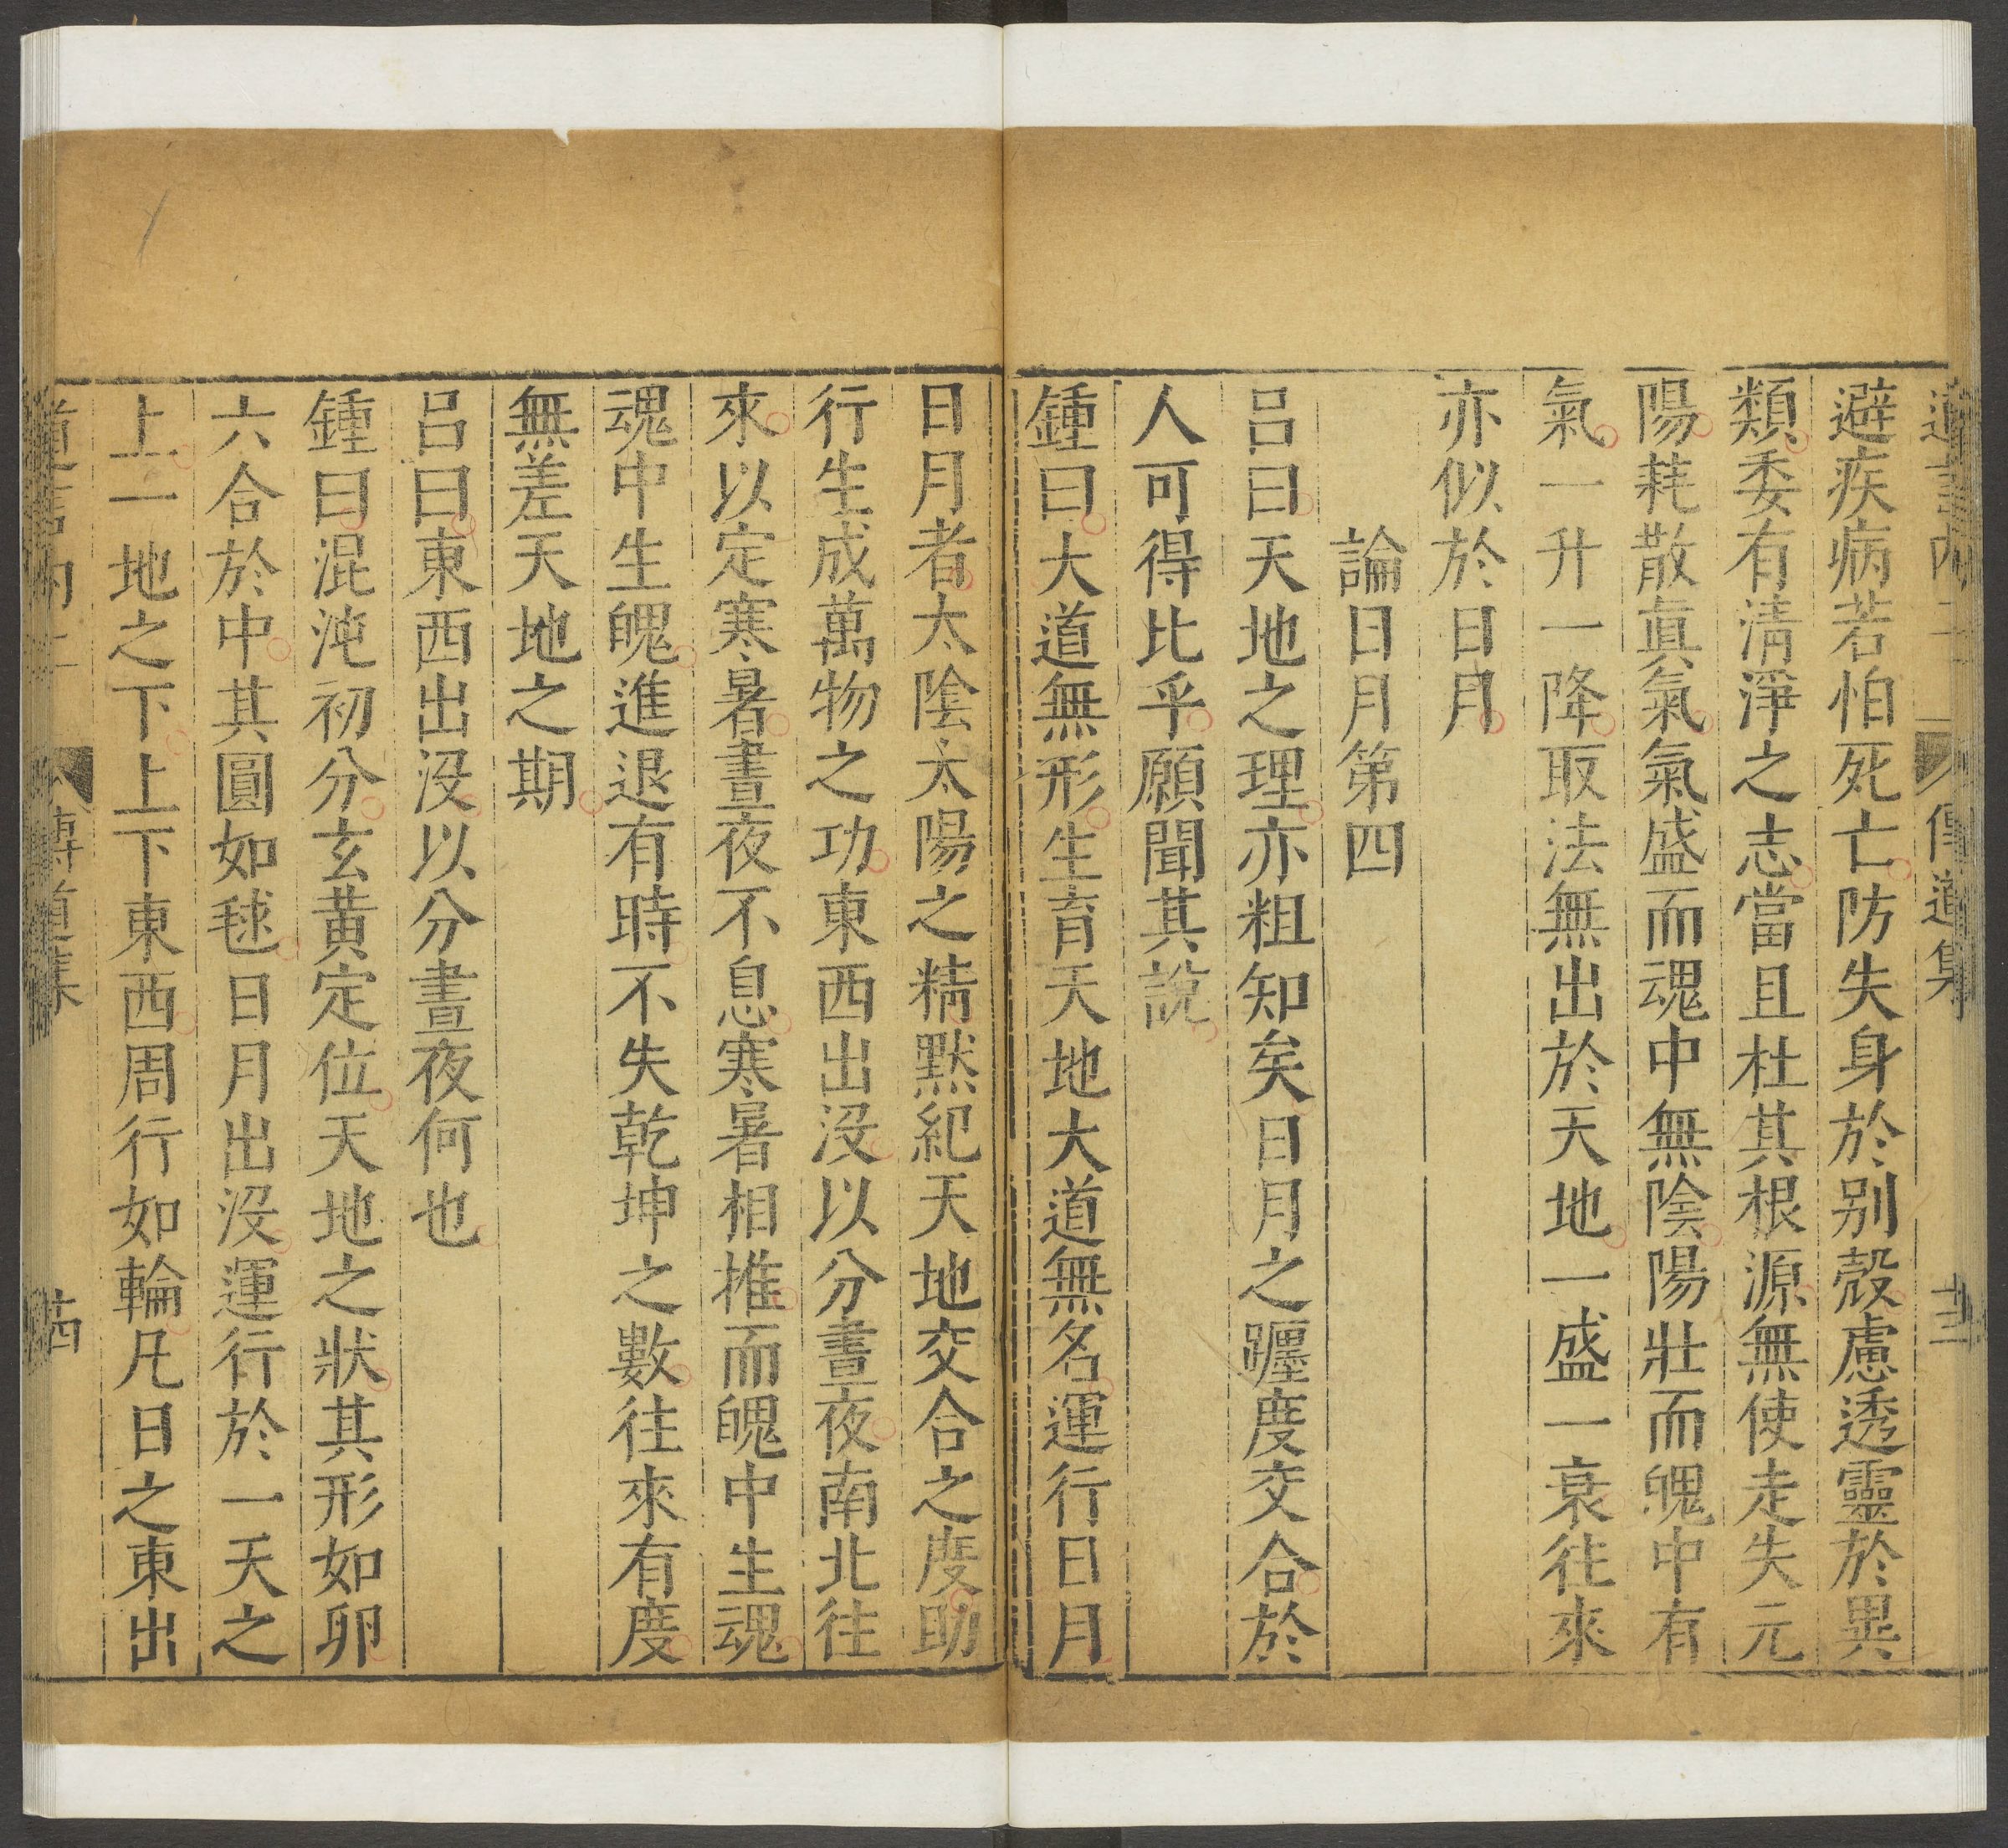 傳道集
避疾病若怕死亡防失身於别殼慮透靈於異
類委有清淨之志當且杜其根源無使走失元
陽耗散真氣氣盛而魂中無陰陽壯而魄中有
氣一升一降取法無出於天地一盛一衰徃來
亦似於日月
論日月第四
吕曰天地之理亦粗知矣日月之躔度交合於
人可得比乎願聞其說
鍾曰大道無形生育天地大道無名運行日月
日月者太陰太陽之精默紀天地交合之度助
行生成萬物之功東西出没以分晝夜南北往
來以定寒暑晝夜不息寒暑相推而魄中生魂
魂中生魄進退有時不失乾坤之數往來有度
無差天地之期
吕曰東西出没以分晝夜何也
鍾曰混沌初分玄黄定位天地之狀其形如卵
六合於中其圓如毬日月出没運行於一天之
上一地之下上下東西周行如輪凡日之東出
傳道集